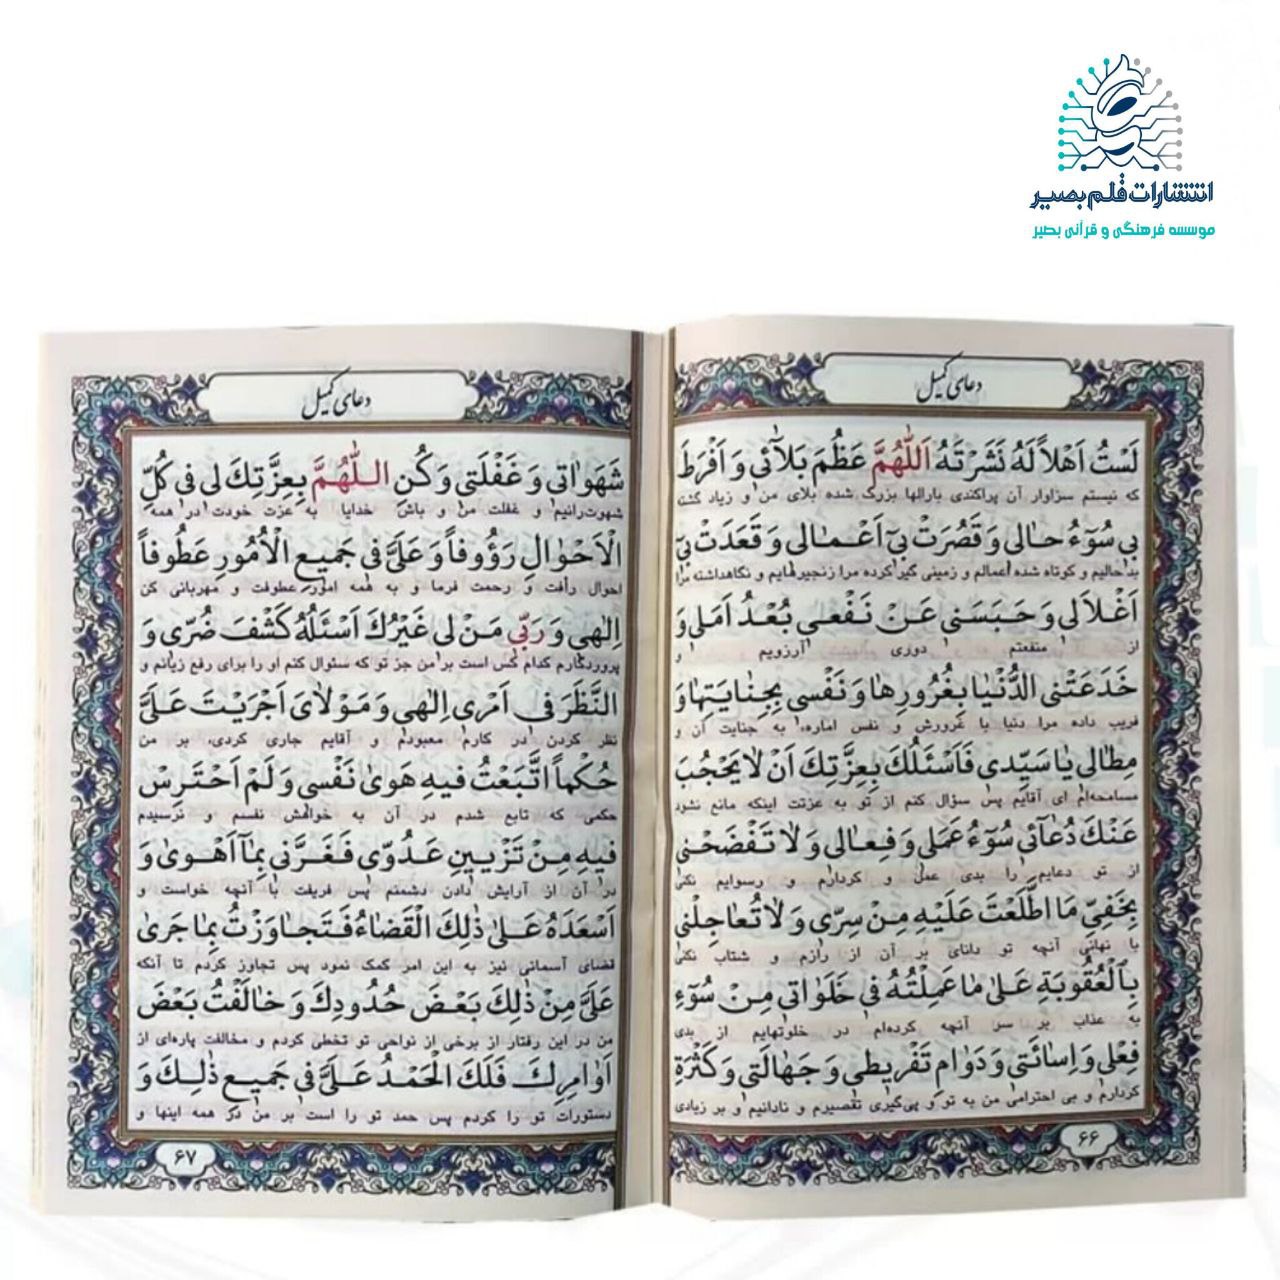 انتشارات قلم بصیر
موسسه فرهنگی و قرآنی بصیر
دعای کمیل
لَسْتُ اَهْلاً لَهُ نَشَرْتَهُ اَللّٰهُمَّ عَظُمَ بَلآٰئی وَ اَفْرَطَ
که نیستم سزاوار آن پراکندی بارالها بزرگ شده بلای من و زیاد گشته
بی سُوٓءُ حالی وَ قَصُرَتْ بیٓ اَعْمالی وَ قَعَدَتْ بیٓ
بد حالیم و کوتاه شده اعمالم و زمینی گیر کرده مرا زنجیرهایم و نگاهداشته مرا
اَغْلالی وَ حَبَسَنی عَنْ نَفْعی بُعْدُ اَمَلی وَ
از منفعتم دوری آرزویم و
خَدَعَتْنی الدُّنْیا بِغُرُورِها وَ نَفْسی بِجِنایَتِها وَ
فریب داده مرا دنیا با غرورش و نفس اماره، به جنایت آن و
مِطالی یا سَیِّدی فَاَسْئَلُكَ بِعِزَّتِكَ اَنْ لا یَحْجُبَ
مسامحه‌ام ای آقایم پس سؤال کنم از تو به عزتت اینکه مانع نشود
عَنْكَ دُعآئی سُوٓءُ عَمَلی وَ فِعالی وَ لا تَفْضَحْنی
از تو دعایم را بدی عمل و کردارم و رسوایم نکنی
بِخَفِیِّ مَا اطَّلَعْتَ عَلَیْهِ مِنْ سِرّی وَ لا تُعاجِلْنی
با نهانی آنچه تو دانای بر آن از رازم و شتاب نکنی
بِالْعُقُوبَةِ عَلیٰ ما عَمِلْتُهُ فی خَلَواتی مِنْ سُوٓءِ
به عذاب بر سر آنچه کرده‌ام در خلوتهایم از بدی
فِعْلی وَ اِسائَتی وَ دَوامِ تَفْریطی وَ جَهالَتی وَ كَثْرَةِ
کردارم و بی احترامی من به تو و پی‌گیری تقصیرم و نادانیم و بر زیادی
۶۶
دعای کمیل
شَهَواتی وَ غَفْلَتی وَ كُنِ اللّٰهُمَّ بِعِزَّتِكَ لی فی كُلِّ
شهوت‌رانیم و غفلت من و باش خدایا به عزت خودت در همه
الْاَحْوالِ رَؤُوفاً وَ عَلَیَّ فی جَمیعِ الْاُمُورِ عَطُوفاً
احوال رأفت و رحمت فرما و به همه امور عطوفت و مهربانی کن
اِلٰهی وَ رَبّی مَنْ لی غَیْرُكَ اَسْئَلُهُ كَشْفَ ضُرّی وَ
پروردگارم کدام کس است بر من جز تو که سئوال کنم او را برای رفع زیانم و
النَّظَرَ فی اَمْری اِلٰهی وَ مَوْلایَ اَجْرَیْتَ عَلَیَّ
نظر کردن در کارم معبودم و آقایم جاری کردی، بر من
حُكْماً اتَّبَعْتُ فیهِ هَویٰ نَفْسی وَ لَمْ اَحْتَرِسْ
حکمی که تابع شدم در آن به خواهش نفسم و نترسیدم
فیهِ مِنْ تَزْیینِ عَدُوّی فَغَرَّنی بِمآ اَهْویٰ وَ
در آن از آرایش دادن دشمنم پس فریفت با آنچه خواست و
اَسْعَدَهُ عَلیٰ ذٰلِكَ الْقَضآءُ فَتَجاوَزْتُ بِما جَریٰ
قضای آسمانی نیز به این امر کمک نمود پس تجاوز کردم تا آنکه
عَلَیَّ مِنْ ذٰلِكَ بَعْضَ حُدُودِكَ وَ خالَفْتُ بَعْضَ
من در این رفتار از برخی از نواحی تو تخطی کردم و مخالفت پاره‌ای از
اَوامِرِكَ فَلَكَ الْحَمْدُ عَلَیَّ فی جَمیعِ ذٰلِكَ وَ
دستورات تو را کردم پس حمد تو را است بر من در همه اینها و
۶۷